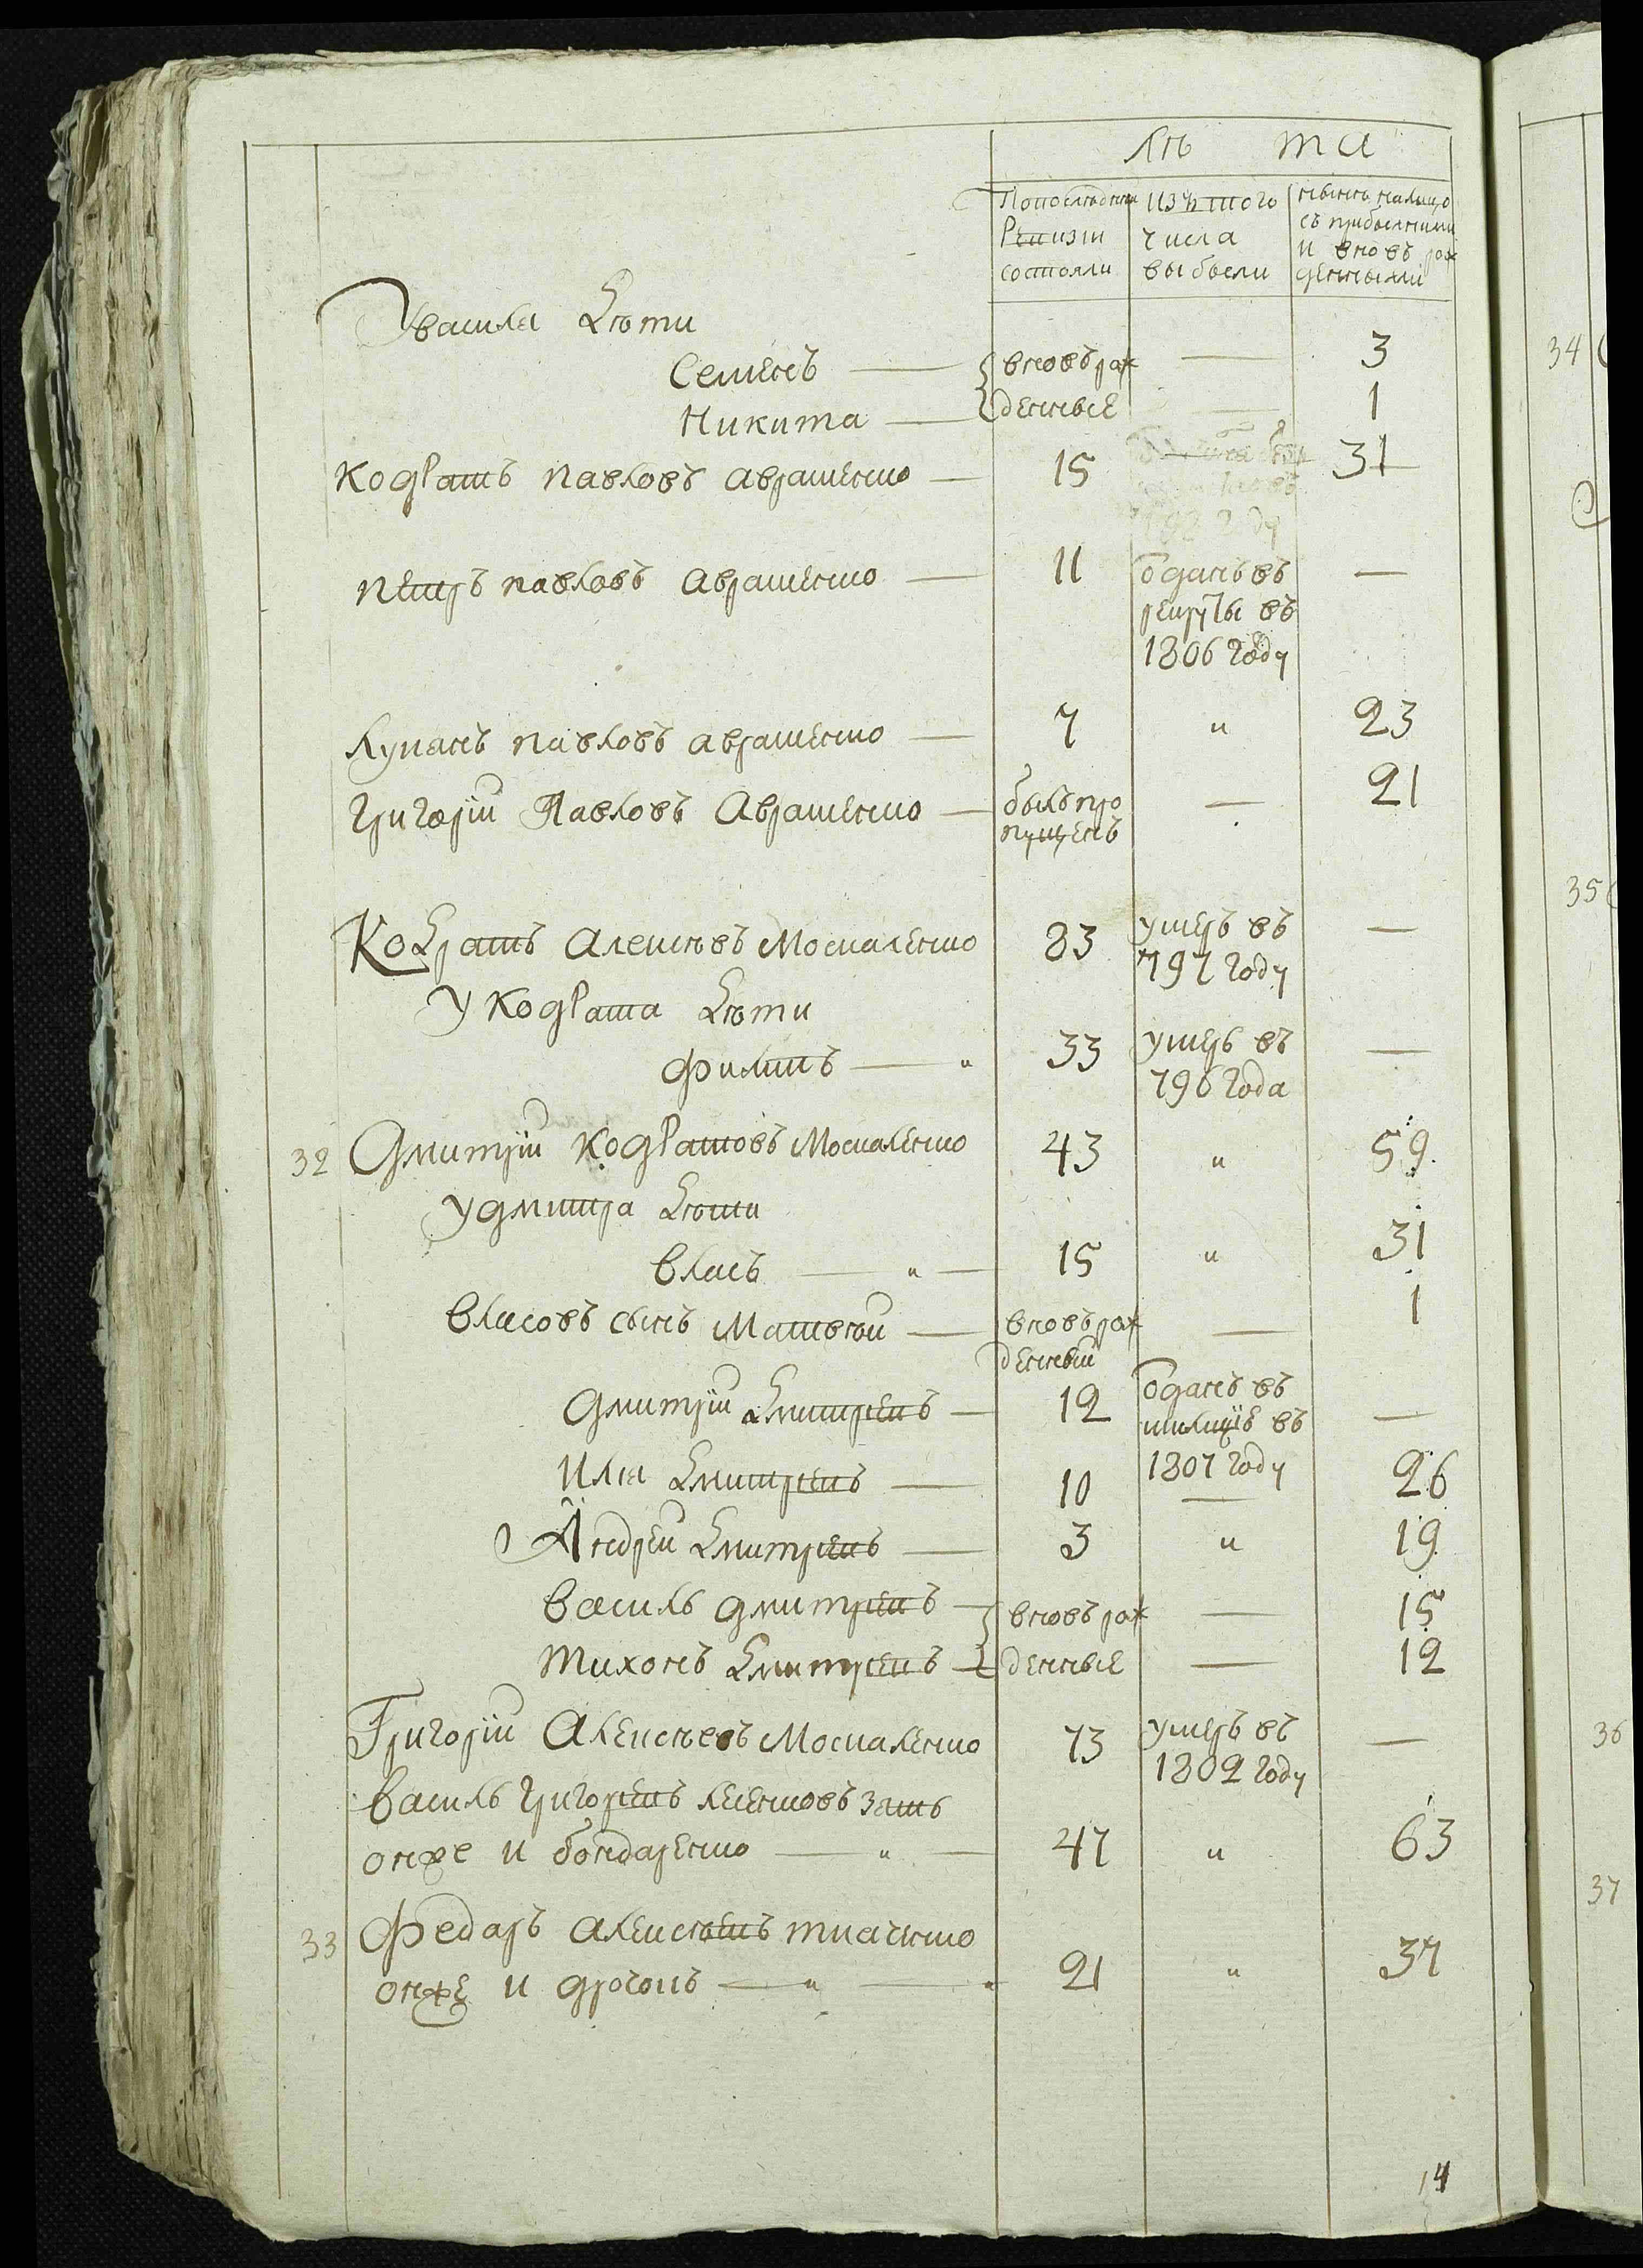 Лѣ та
Попослѣдней Ревизiи состояли
изътого числа выбыли
нынѣ налицо съ прибылыми и вновь рожденными
Увасиля дѣти
Семенъ — вновь рож 3
Никита — денные 1
Кодратъ Павловъ авраменко — 15 31
1802 году
Петръ Павловъ авраменко — 11 одданъ въ —
рекруты въ
1806 году
Лукянъ Павловъ авраменко — 7 " 23
Григорiй Павловъ Авраменко — былъ про — 21
пущенъ
Кодратъ Алексѣевъ Москаленко 83 умеръ въ —
797 году
У Кодрата дѣти
Филипъ — " 33 умеръ въ —
796 года
32 Дмитрiй Кодратовъ Москаленко 43 " 59
У дмитра дѣти
Власъ — " — 15 " 31
Власовъ сынъ Матвѣй — вновь рож — 1
денный
Дмитрiй Дмитреевъ — 12 одданъ въ —
милицiю въ
1807 году
Илья Дмитреевъ — 10 — 26
Андрей Дмитреевъ — 3 " 19
Василь Дмитреевъ — вновь рож — 15
Тихонъ Дмитреевъ — денные — 12
Григорiй Алексѣевъ Москаленко 73 умеръ въ —
1802 году
Василь Григорьевъ зять
онже и бондаренко — " — 47 " 63
33 Федаръ Алексѣевъ Ткаченко
онже и — " — " 21 " 37
34
35
36
37
14